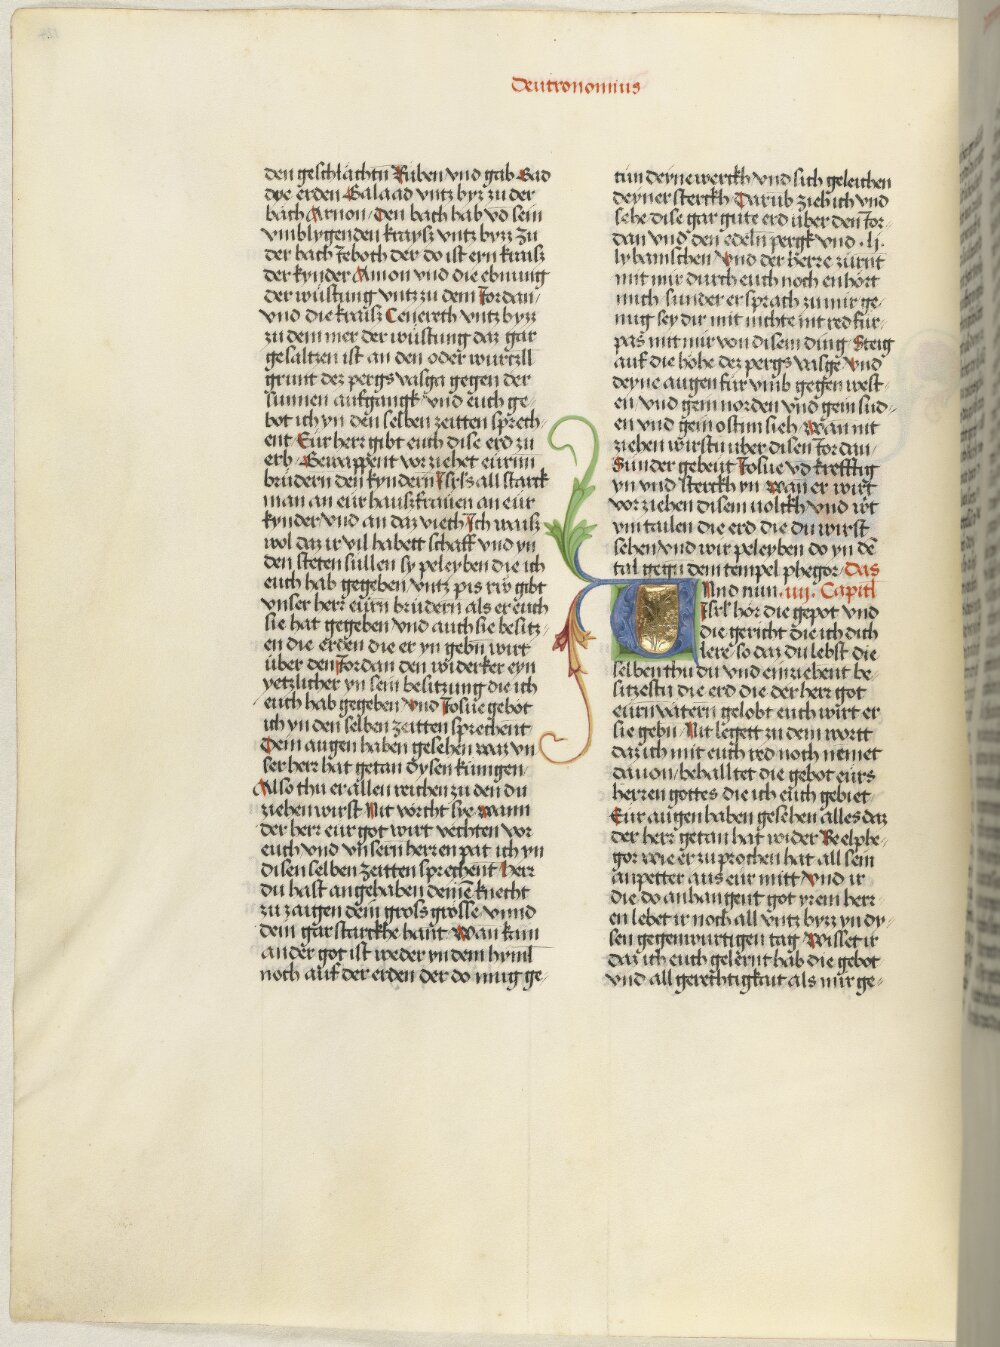 Deutronomius
den geschlächtn Ruben vnd gab Gad
dye erden Galaad vntz byz zu der
bach Arnon Den bach hab vō sein
vmblygenden kraysz vntz byz zu
der bach Jeboth der do ist eyn kraisz
der kynder Amon vnd die ebnung
der wüstung vntz zu dem Jordan
vnd die kraisz Cenereth vntz byz
zu dem mer der wüstung daz gar
gesaltzen ist an den oder wurtzll
grunt dez pergs vasga gegen der
sunnen aufgangk vnd euch ge-
bot ich yn den selben zeitten sprech-
ent Eur herr gibt euch dise erd zu
erb Gewappent vor ziehet eurnn
brüdern den kyndern Isrls all starck
man an eur hauszfrauen an eur
kynder vnd an daz viech Ich waisz
wol daz ir vil habett schaff vnd yn
den steten süllen sy peleyben die ich
euch hab gegeben vntz pis rw gibt
vnser herr eurn brüdern als er euch
sie hat gegeben vnd auch sie besitz-
en die erden die er yn gebn wirt
über den Jordan den widerker eyn
yetzlicher yn sein besitzung die ich
euch hab gegeben vnd Josue gebot
ich yn den selben zeitten sprechent
Dein augen haben gesehen waz vn
ser herr hat getan dysen kunigen
Also thu er allen reichen zu den du
ziehen wirst Nit vörcht sye wann
der herr eur got wirt vechten vor
euch vnd vnsern herren pat ich yn
disen selben zeitten sprechent herr
du hast angehaben deinē knecht
zu zaigen dein gros grösse vnnd
dein gar starckhe hant Wan kain
ander got ist weder yn dem hyml
noch auf der erden der do mug ge-
tun deyne werckh vnd sich geleichen
deyner sterckh Darūb zieh ich vnd
sehe dise gar gute erd über den Jor
dan vnd den edeln pergk vnd . li .
lybanischen vnd der herre zürnt
mit mir durch euch noch enhort
mich sunder er sprach zu mir ge-
nug sey dir mit nichte nit red für-
pas mit mir von disem ding Steig
auf die höhe dez pergs vasge vnd
deyne augen für vmb gegen west-
en vnd gein norden vnd gein sud-
en vnd gein osten sieh Wan nit
ziehen wirstu über disen Jordan
Sunder gebeut Josue vō krefftig
yn vnd sterckh yn wan er wirt
vor ziehen disem uolckh vnd wt
vm tailen die erd die du wirst
sehen vnd wir peleyben do yn dē
tal gegn dem tempel phegor Das
Und nun .iiij. Capitl
Isrl hör die gepot vnd
die gericht die ich dich
lere so daz du lebst die
selben thu du vnd einziehent be-
sitzestu die erd die der herr got
eurn vätern gelobt euch wirt er
sie gebn Nit legett zu dem wortt
daz ich mit euch red noch nemet
dauon behalltet die gebot eurs
herren gottes die ich euch gebiet
Eur augen haben gesehen alles daz
der herr getan hat wider Beelphe-
gor wie er zuprochen hat all sein
anpetter aus eur mitt vnd ir
die do anhangent got yrem herr-
en lebet ir noch all vntz byz yn dy-
sen gegenwurtigen tag Wisset ir
daz ich euch gelernt hab die gebot
vnd all gerechtigkait als mir ge-